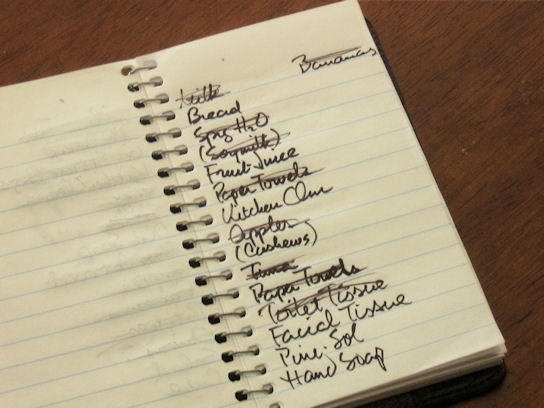 Bananas
Milk
Bread
Spg H2O
(Soymilk)
Fruit Juice
Paper Towels
Kitchen Clnr
Apples
(Cashews)
Tuna
Paper Towels
Toilet Tissue
Facial Tissue
Pine-Sol
Hand Soap